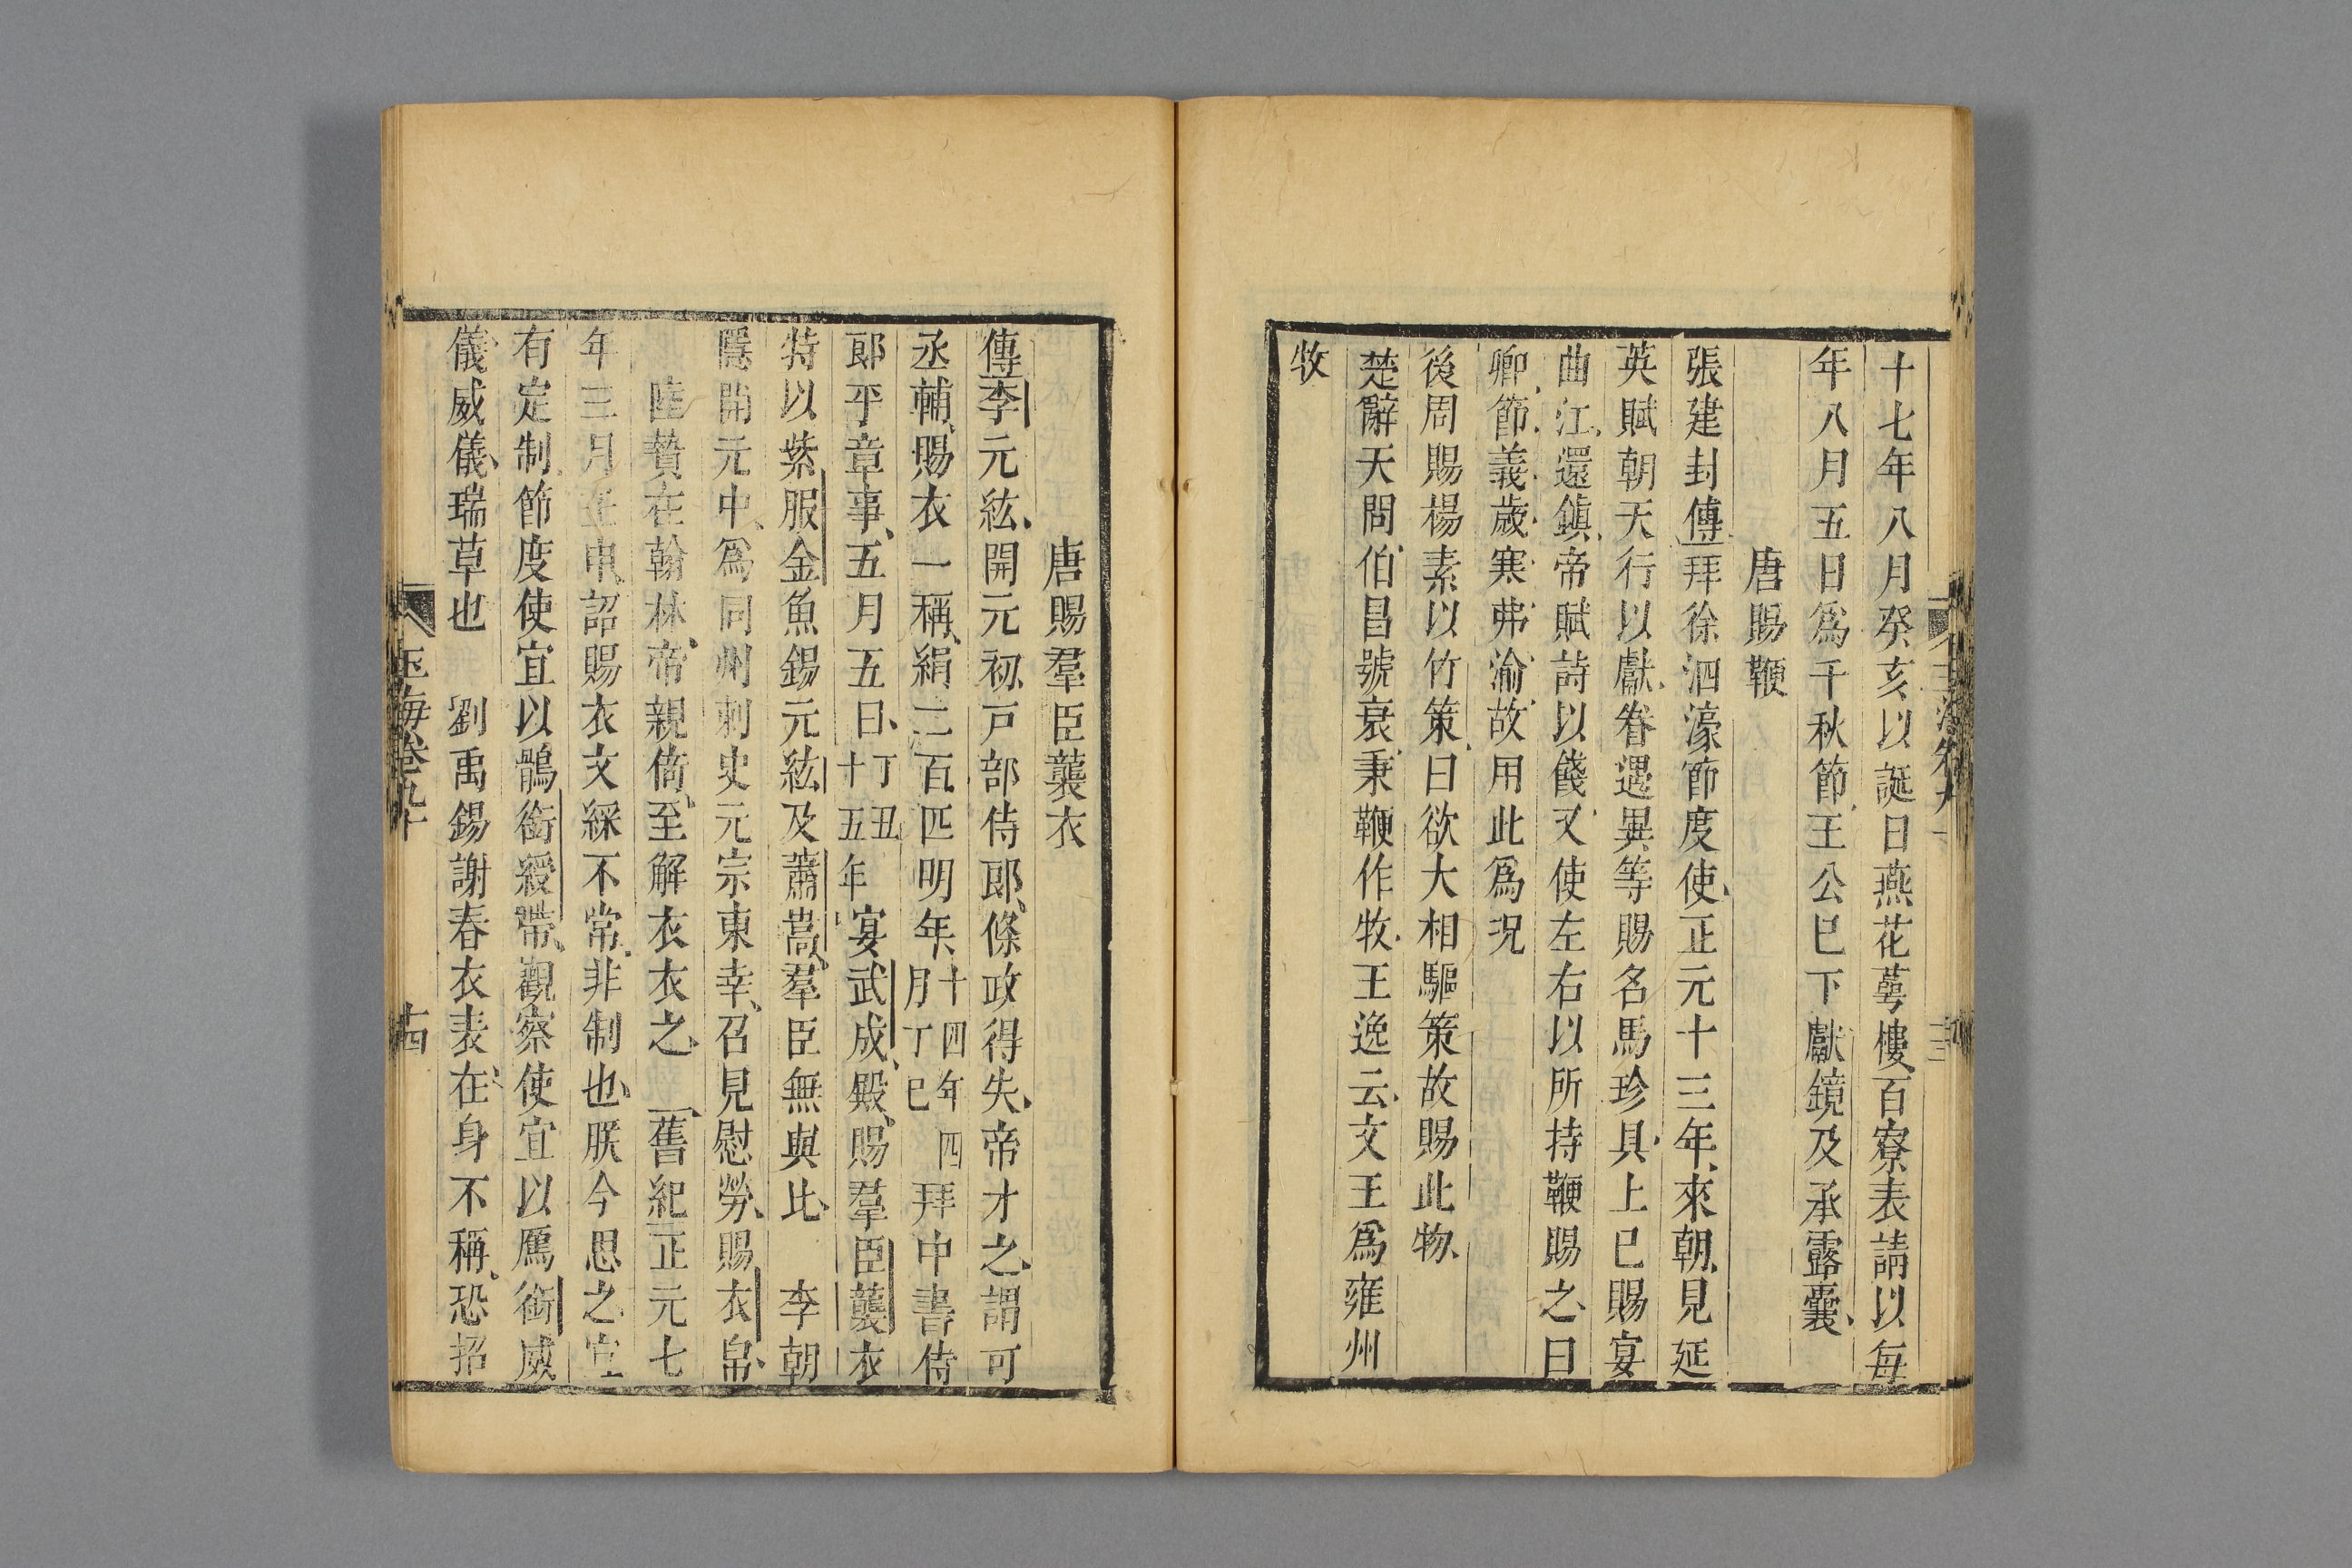 十七年八月癸亥以誕日燕花萼樓百寮表請以每
年八月五日爲千秋節王公已下獻鏡及承露囊
唐賜鞭
張建封傳拜徐泗濠節度使正元十三年來朝見延
英賦朝天行以獻眷遇異等賜名馬珍具上巳賜宴
曲江還鎮帝賦詩以餞又使左右以所持鞭賜之曰
卿節義歲寒弗渝故用此爲况
後周賜楊素以竹策曰欲大相驅策故賜此物
楚辭天問伯昌號衰秉鞭作牧王逸云文王爲雍州
牧
唐賜羣臣襲衣
傳李元紘開元初戸部侍郎條政得失帝才之謂可
丞輔賜衣一稱絹二百匹明年十四年四月丁巳拜中書侍
郎平章事五月五日丁丑十五年宴武成殿賜羣臣襲衣
特以紫服金魚錫元紘及蕭嵩羣臣無與比 李朝
隱開元中爲同州刺史元宗東幸召見慰勞賜衣帛
陸贄在翰林帝親倚至解衣衣之 舊紀正元七
年三月 詔賜衣文綵不常非制也朕今思之宜
有定制節度使宜以鶻銜綬帶觀察使宜以鴈銜威
儀威儀瑞草也 劉禹錫謝春衣表在身不稱恐招
玉海卷九十
十四